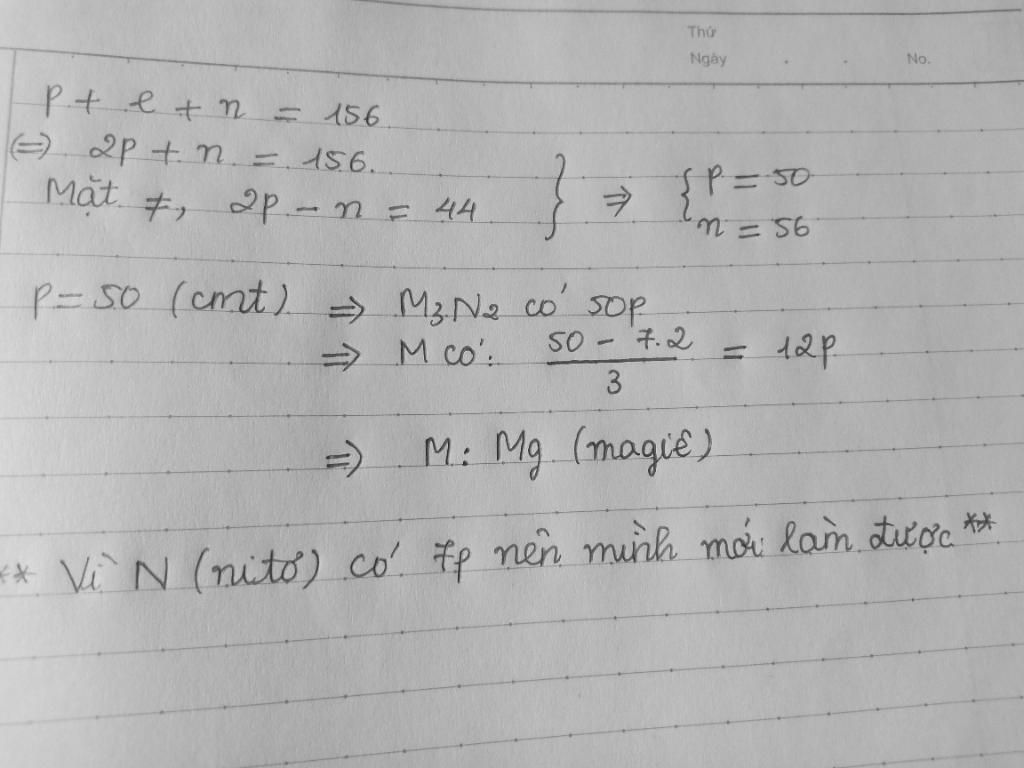 Thứ
Ngày . . No.
p + e + n = 156
(=) 2p + n = 156.
Mặt ≠, 2p - n = 44 } => { p = 50
n = 56
p = 50 (cmt) => M₃N₂ có 50p
=> M có: (50 - 7.2)/3 = 12p
=> M: Mg (magiê)
** Vì N (nitơ) có 7p nên mình mới làm được **